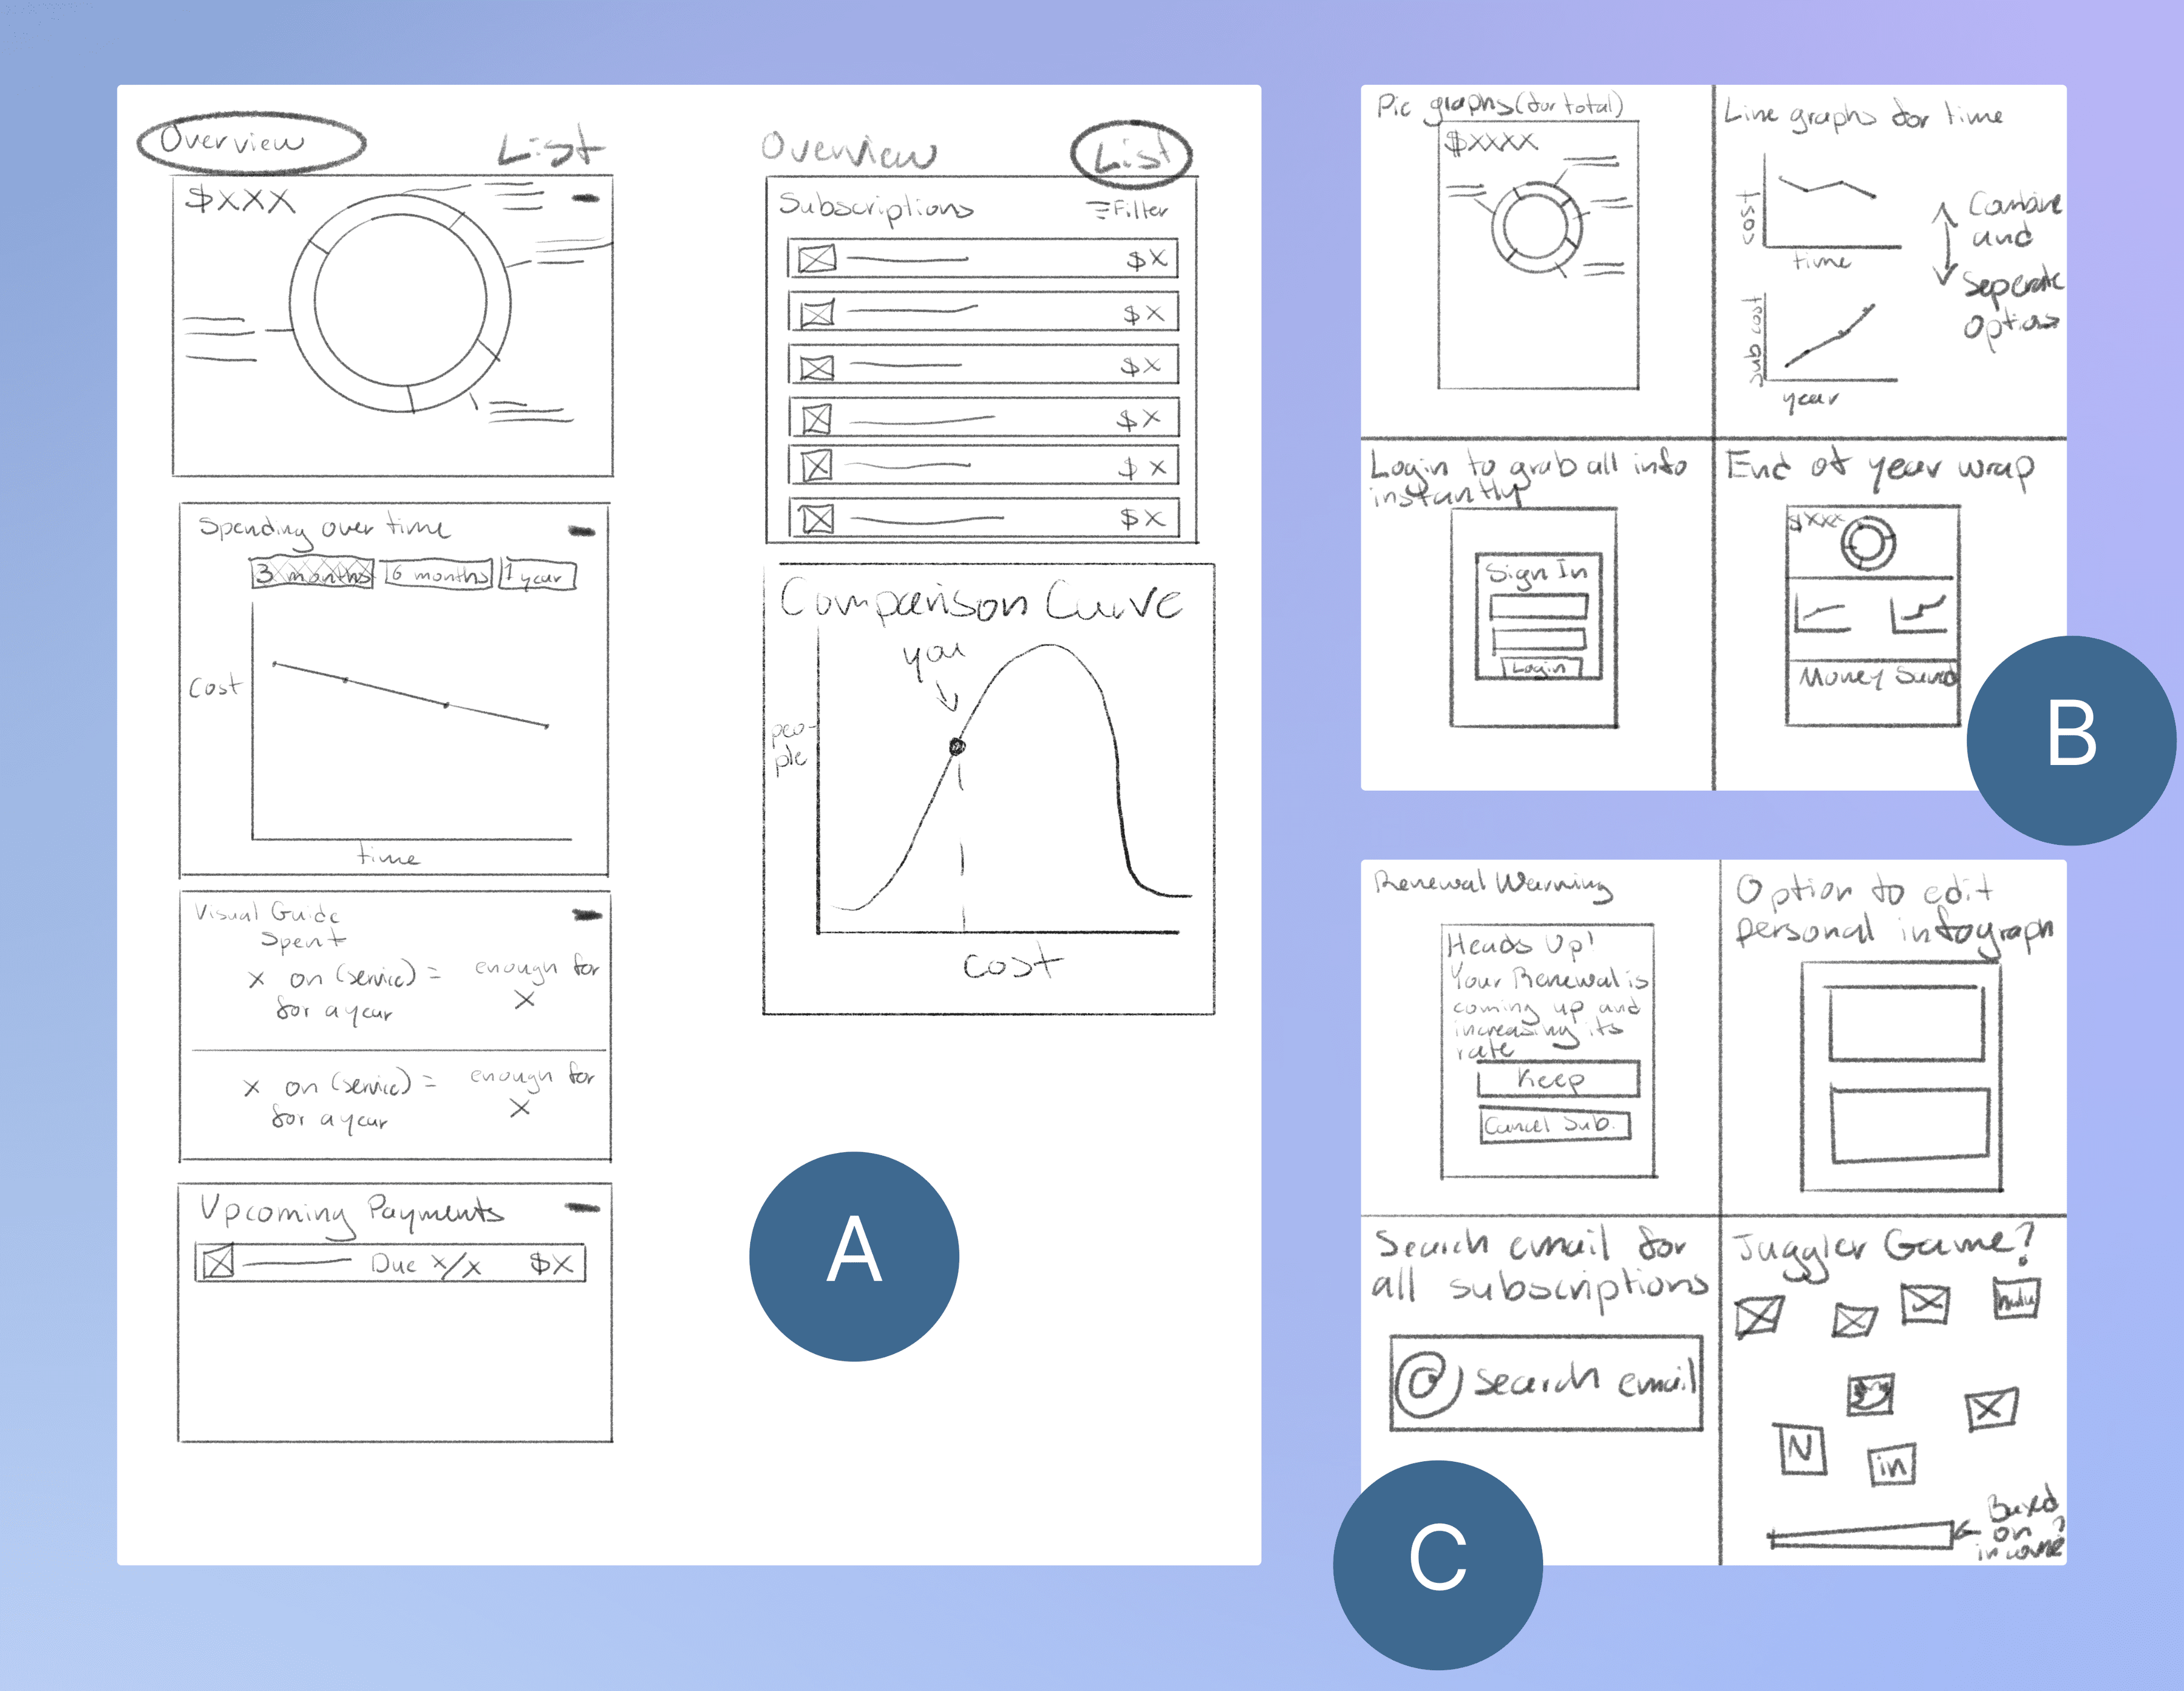 Overview
List
$XXX
Spending over time
3 months
6 months
1 year
Cost
time
Visual Guide
Spent
X on (service) = enough for
for a year X
X on (service) = enough for
for a year X
Upcoming Payments
Due x/x $X
Overview
List
Subscriptions
Filter
$X
$X
$X
$X
$X
$X
Comparison Curve
you
peo-
ple
Cost
A
Pie graphs (for total)
$XXXX
Line graphs for time
cost
time
Combine
and
Seperate
options
sub cost
year
Login to grab all info
instantly
Sign In
Login
End of year wrap
$XXX
Money Saved
B
Renewal Warning
Heads Up!
Your Renewal is
coming up and
increasing its
rate
Keep
Cancel Sub.
Option to edit
personal infograph
Search email for
all subscriptions
@ Search email
Juggler Game?
hulu
N
in
Based
on
income?
C